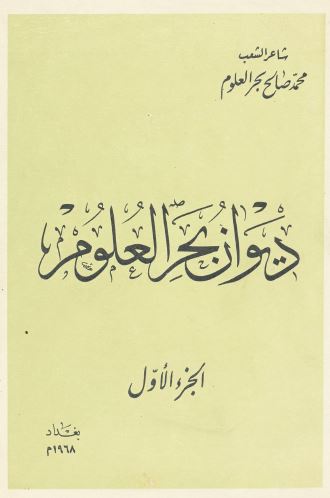 شاعر الشعب
محمد صالح بحر العلوم
ديوان بحر العلوم
الجزء الأول
بغداد
١٩٦٨م